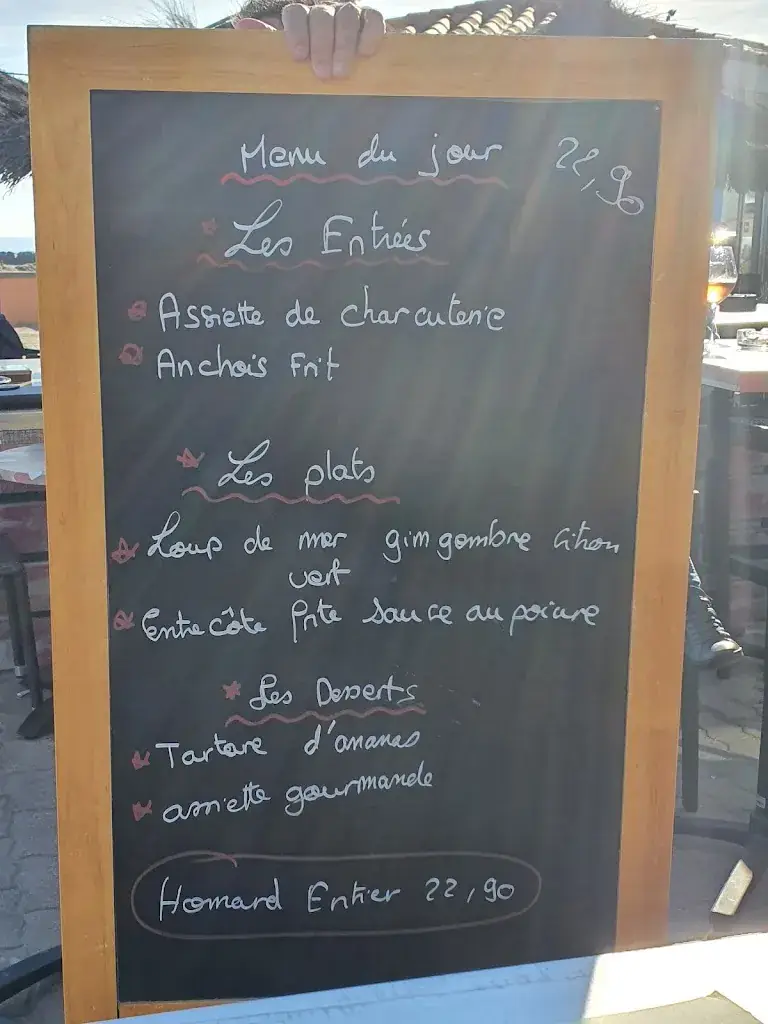 Menu du jour 22,90
Les Entrées
Assiette de charcuterie
Anchois Frit
Les plats
Loup de mer gimgombre Citron
vert
Entrecôte frite sauce au poivre
Les Desserts
Tartare d'ananas
assiette gourmande
Homard Entier 22,90